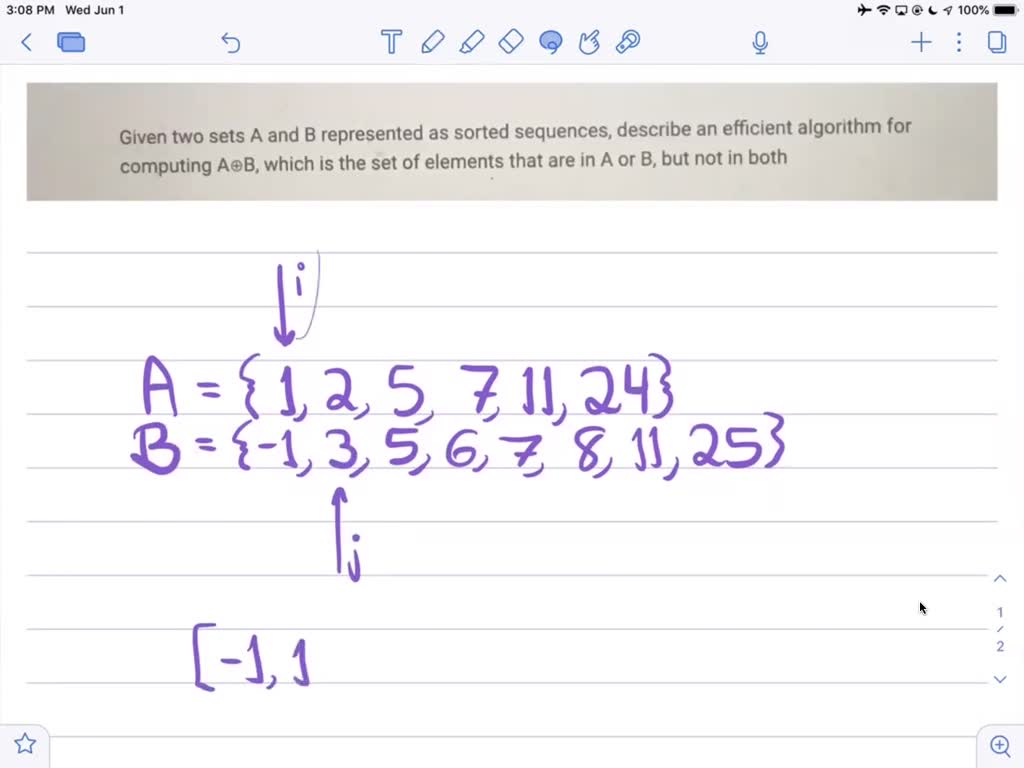 3:08 PM Wed Jun 1
100%
T
Given two sets A and B represented as sorted sequences, describe an efficient algorithm for
computing A⊕B, which is the set of elements that are in A or B, but not in both
i
A = {1, 2, 5, 7, 11, 24}
B = {-1, 3, 5, 6, 7, 8, 11, 25}
j
[-1, 1
1
/
2